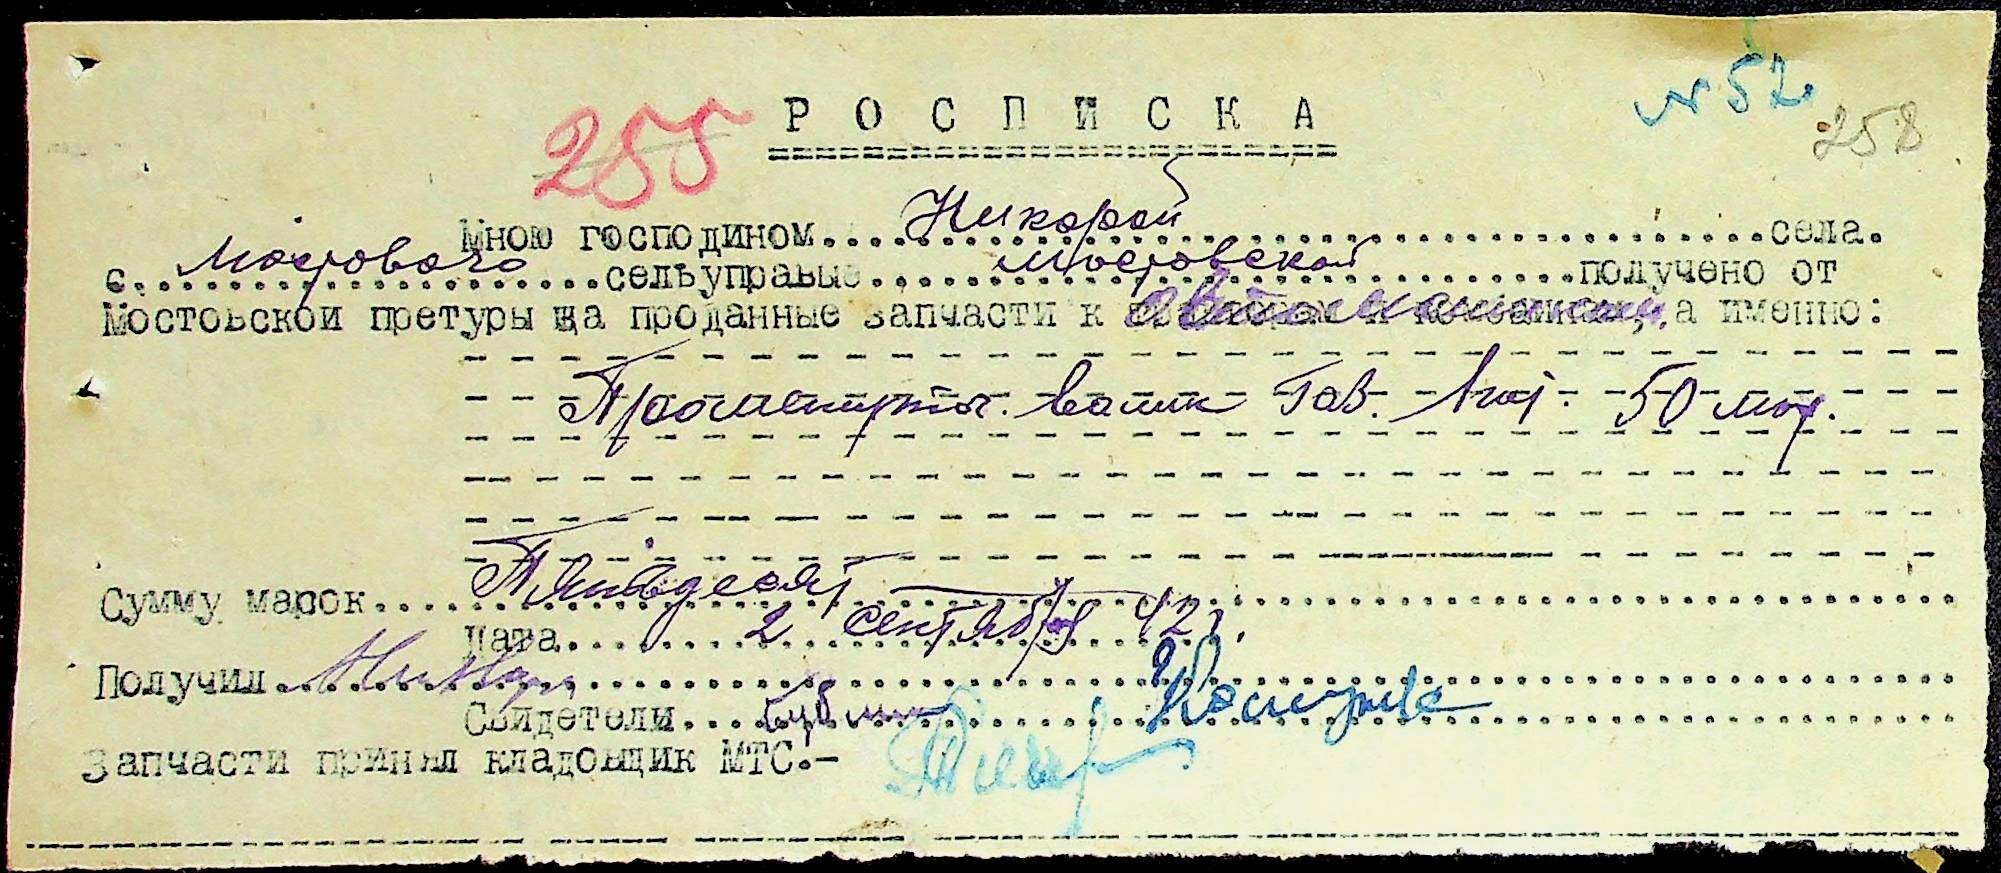 № 52
258
255
РОСПИСКА
Мною господином....Никорой....села.
с....Мостового....сельуправые....Мостовской....получено от
Мостовской претуры ща проданные запчасти к автомашинам, а именно:
валик Газ. 1 шт. 50 мар.
Сумму марок....Пятьдесят....
Дата....2 сентября 42 г.
Получил....
Свидетели....
Запчасти принял кладовщик МТС.-